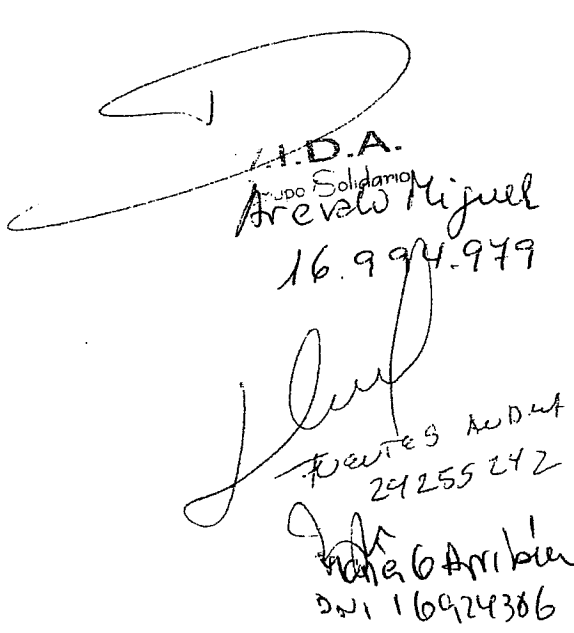 I.D.A.
Grupo Solidario
Arevalo Miguel
16.994.979
FUENTES
24255242
G Arribía
DNI 16924306